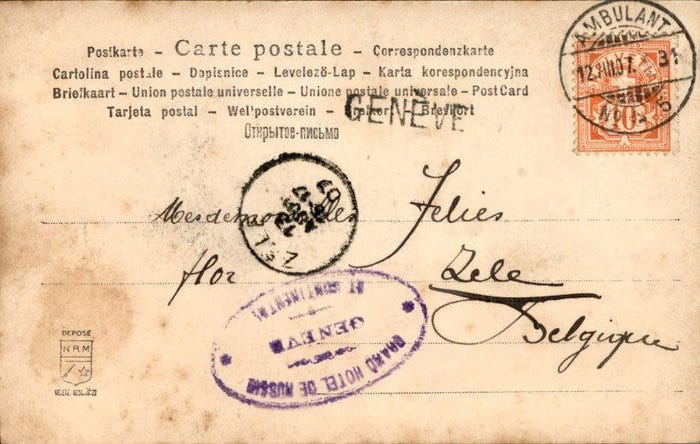 Postkarte – Carte postale – Correspondenzkarte
Cartolina postale – Dopisnice – Levelező-Lap – Karta korespondencyjna
Briefkaart – Union postale universelle – Unione postale universale – Post Card
Tarjeta postal – Weltpostverein – – Brevkort
Открытое-письмо
GENÈVE
AMBULANT
31
No 5
10
ZELE
Mesdemoiselles Felies
flor Zele
Belgique
GRAND HOTEL DE RUSSIE
GENEVE
ET CONTINENTAL
DEPOSÉ
NRM